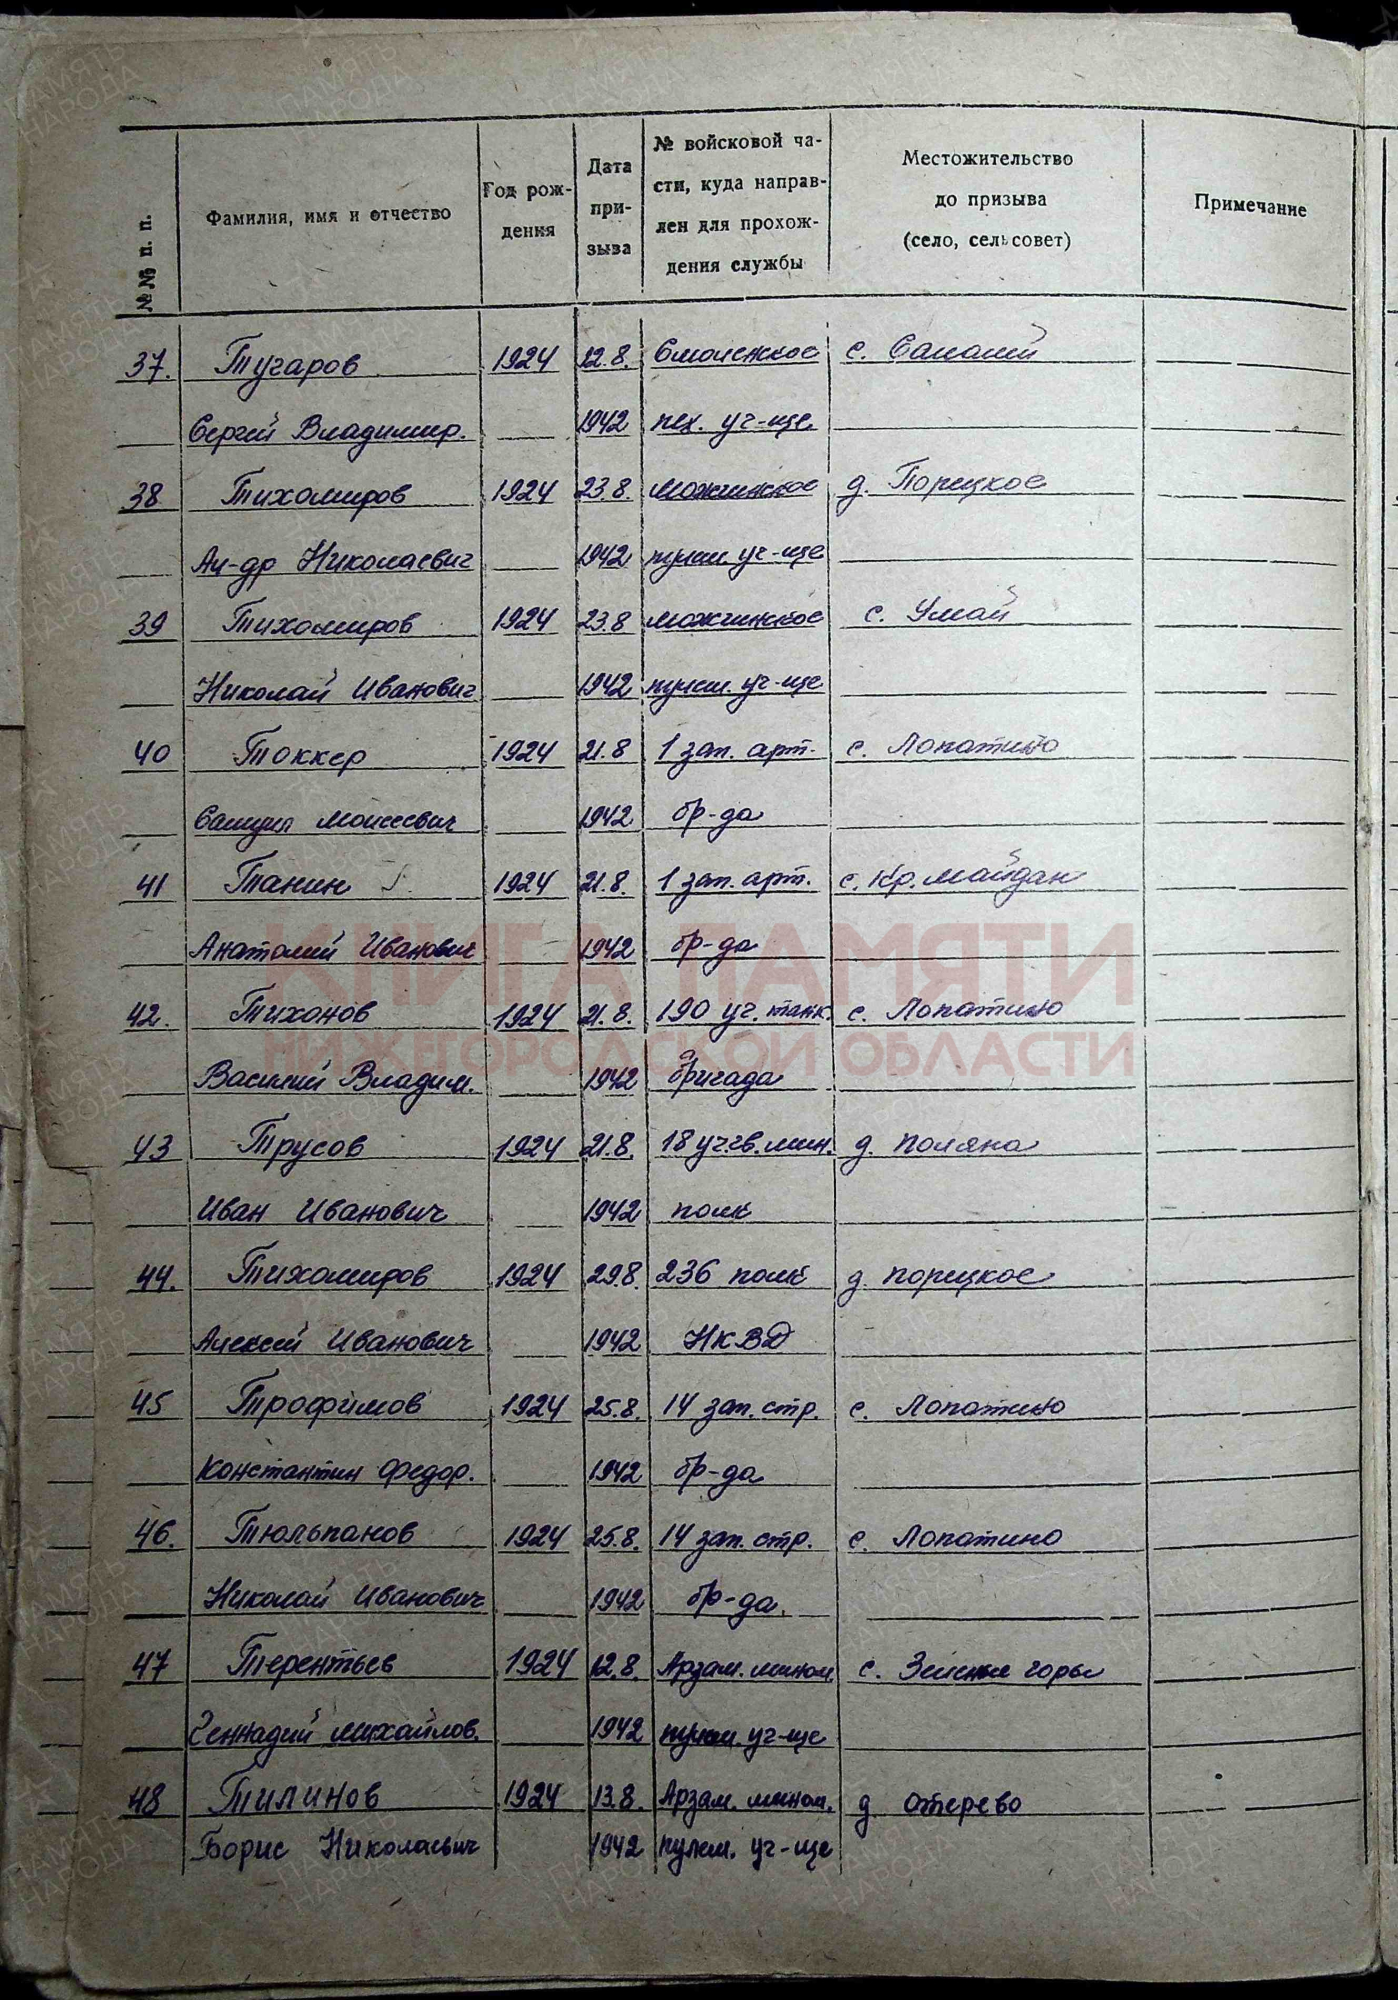 №№ п. п.
Фамилия, имя и отчество
Год рож-
дения
Дата
при-
зыва
№ войсковой ча-
сти, куда направ-
лен для прохож-
дения службы
Местожительство
до призыва
(село, сельсовет)
Примечание
37. Тугаров 1924 12.8. Смоленское с.
Сергей Владимир. 1942 пех. уч-ще
38 Тихомиров 1924 23.8. Можгинское д. Порецкое
Ал-др Николаевич 1942 пулем. уч-ще
39 Тихомиров 1924 23.8 Можгинское с. Умай
Николай Иванович 1942 пулем. уч-ще
40 Токкер 1924 21.8 1 зап. арт. с. Лопатино
Самуил Моисеевич 1942 бр-да
41 Танин 1924 21.8. 1 зап. арт. с. Кр. Майдан
Анатолий Иванович 1942 бр-да
42. Тихонов 1924 21.8. 190 уч. танк. с. Лопатино
Василий Владим. 1942 бригада
43 Трусов 1924 21.8. 18 уч.гв. мин. д. Поляна
Иван Иванович 1942 полк
44. Тихомиров 1924 29.8. 236 полк д. Порецкое
Алексей Иванович 1942 НКВД
45 Трофимов 1924 25.8. 14 зап. стр. с. Лопатино
Константин Федор. 1942 бр-да
46. Тюльпанов 1924 25.8. 14 зап. стр. с. Лопатино
Николай Иванович 1942 бр-да.
47 Терентьев 1924 12.8. Арзам. мином. с. Зеленые горы
Геннадий Михайлов. 1942 пулем. уч-ще
48 Тилинов 1924 13.8. Арзам. мином. д. Отерево
Борис Николаевич 1942 пулем. уч-ще
КНИГА ПАМЯТИ
НИЖЕГОРОДСКОЙ ОБЛАСТИ
ПАМЯТЬ
НАРОДА